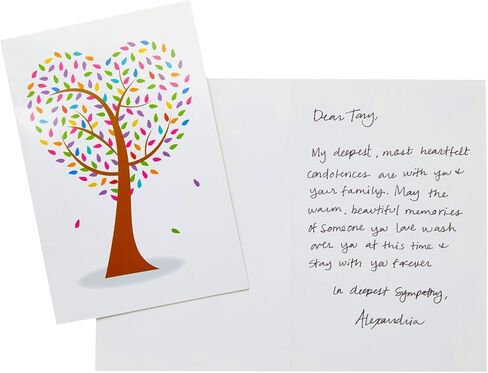 Dear Tony,
My deepest, most heartfelt
condolences are with you &
your family. May the
warm, beautiful memories
of someone you love wash
over you at this time &
stay with you forever
In deepest sympathy,
Alexandria